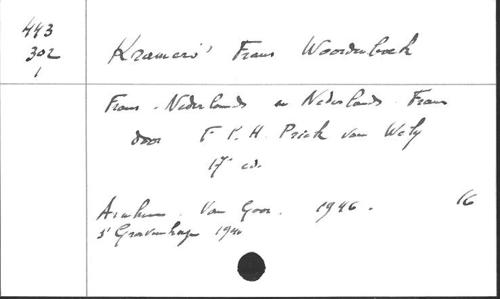 443
302
1
Kramers' Frans Woordenboek
Frans-Nederlands en Nederlands-Frans
door F.P.H. Prick van Wely
17e ed.
Arnhem. Van Goor. 1946. 16
s' Gravenhage 1940